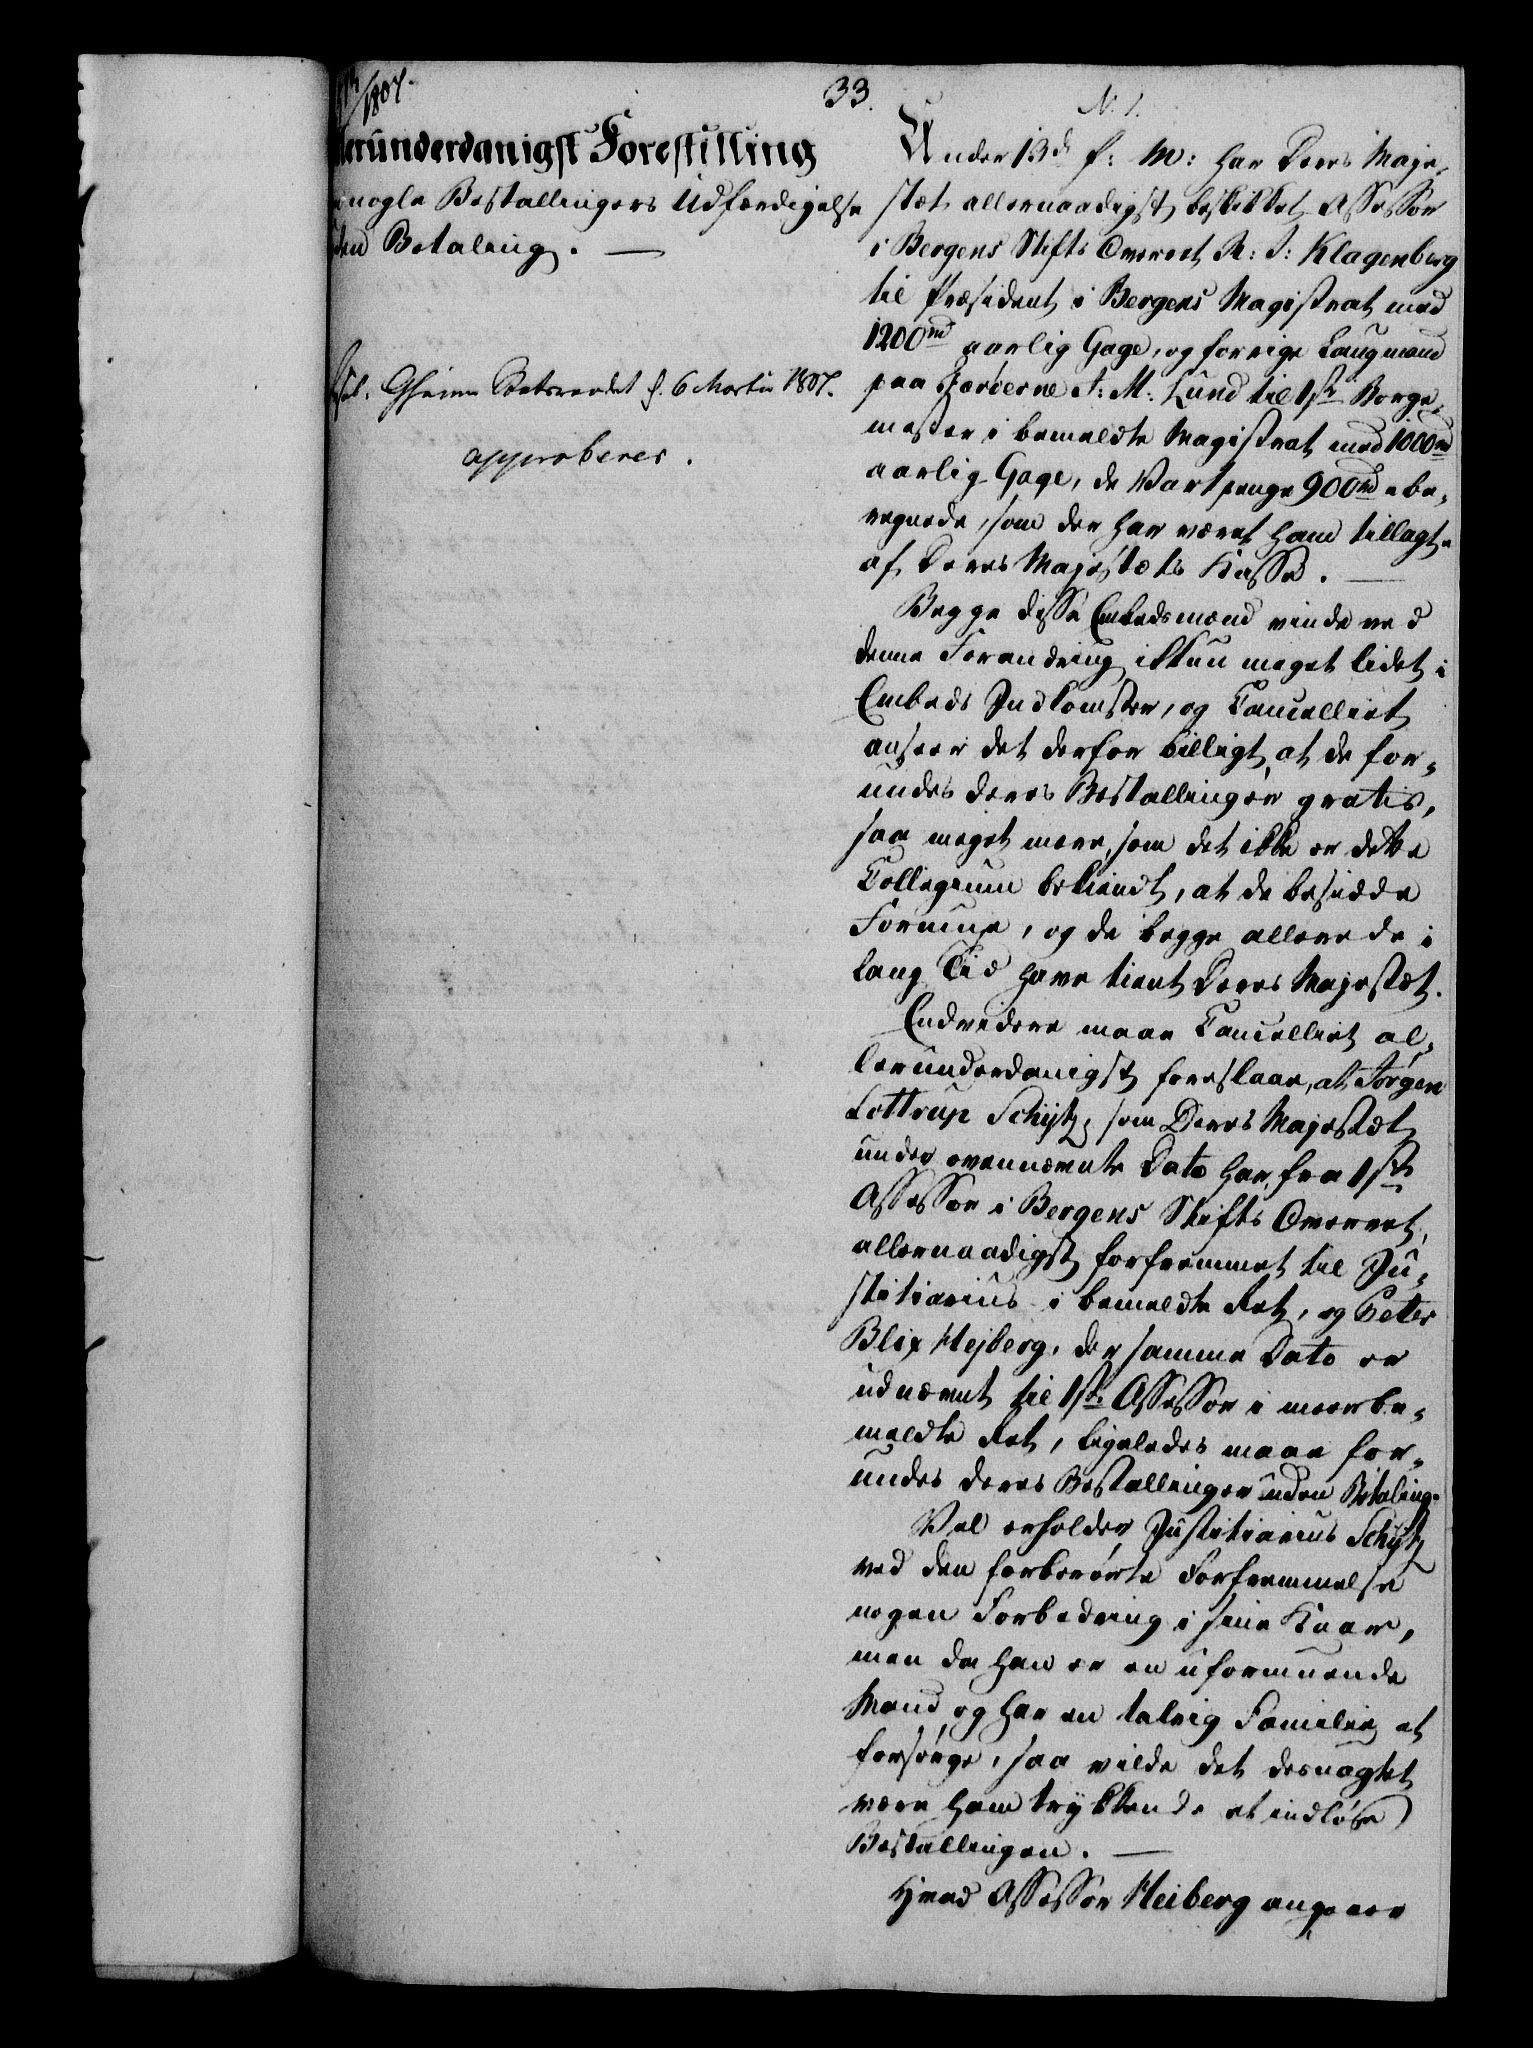 1807.
33.
N. 1.
erunderdanigst Forestilling
nogle Bestallingers Udfærdigelse
den Betaling. —
Geheime Statsraadet d. 6 Martii 1807.
approberes.
Under 13de f: M: har Deres Maje-
stæt allernaadigst beskikket Assessor
i Bergens Stifts Overret R: J: Klagenberg
til Præsident i Bergens Magistrat med
1200 rd aarlig Gage, og forrige Laugmand
paa Færøerne J: M: Lund til 1ste Borge-
mester i bemeldte Magistrat med 1000 rd
aarlig Gage, de Vartpenge 900 rd ibe-
regnede, som der har været ham tillagt
af Deres Majestæts Kasse. —
Begge disse Embedsmænd vinde ved
denne Forandring ikkun meget lidet i
Embeds Indkomster, og Cancelliet
anseer det derfor billigt, at de for-
undes deres Bestallinger gratis,
saa meget mere, som det ikke er dette
Collegium bekiendt, at de besidde
Formue, og de begge allerede i
lang Tid have tient Deres Majestæt.
Endvidere maae Cancelliet al-
lerunderdanigst foreslaae, at Jørgen
Lottrup Schytz, som Deres Majestæt
under ovennævnte Dato har, fra 1ste
Assessor i Bergens Stifts Overret,
allernaadigst forfremmet til Ju-
stitiarius i bemeldte Ret, og Peter
Blix Hejberg, der samme Dato er
udnævnt til 1ste Assessor i meerbe-
meldte Ret, ligeledes maae for-
undes deres Bestallinger uden Betaling.
Vel erholder Justitiarius Schytz
ved den forberørte Forfremmelse
nogen Forbedring i sine Kaar,
men da han er en uformuende
Mand og har en talrig Familie at
forsørge, saa vilde det desuagtet
være ham trykkende at indløse
Bestallingen. —
Hvad Assessor Heiberg angaaer